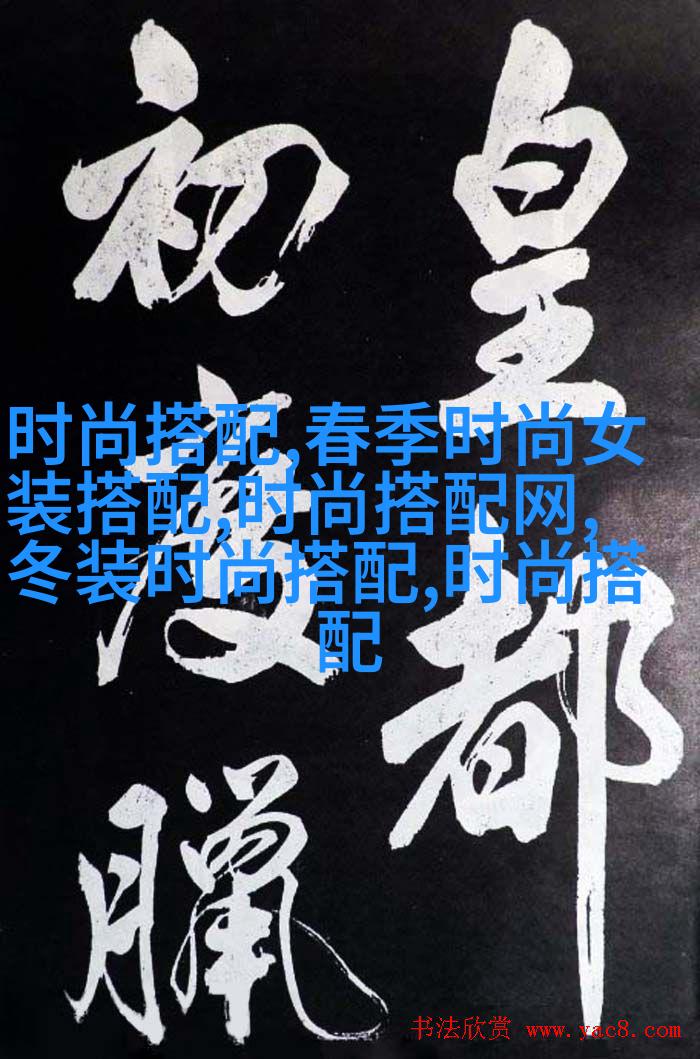 皇都
初度臘
时尚搭配,春季时尚女
装搭配,时尚搭配网,
冬装时尚搭配,时尚搭
配
书法欣赏 www.yac8.com